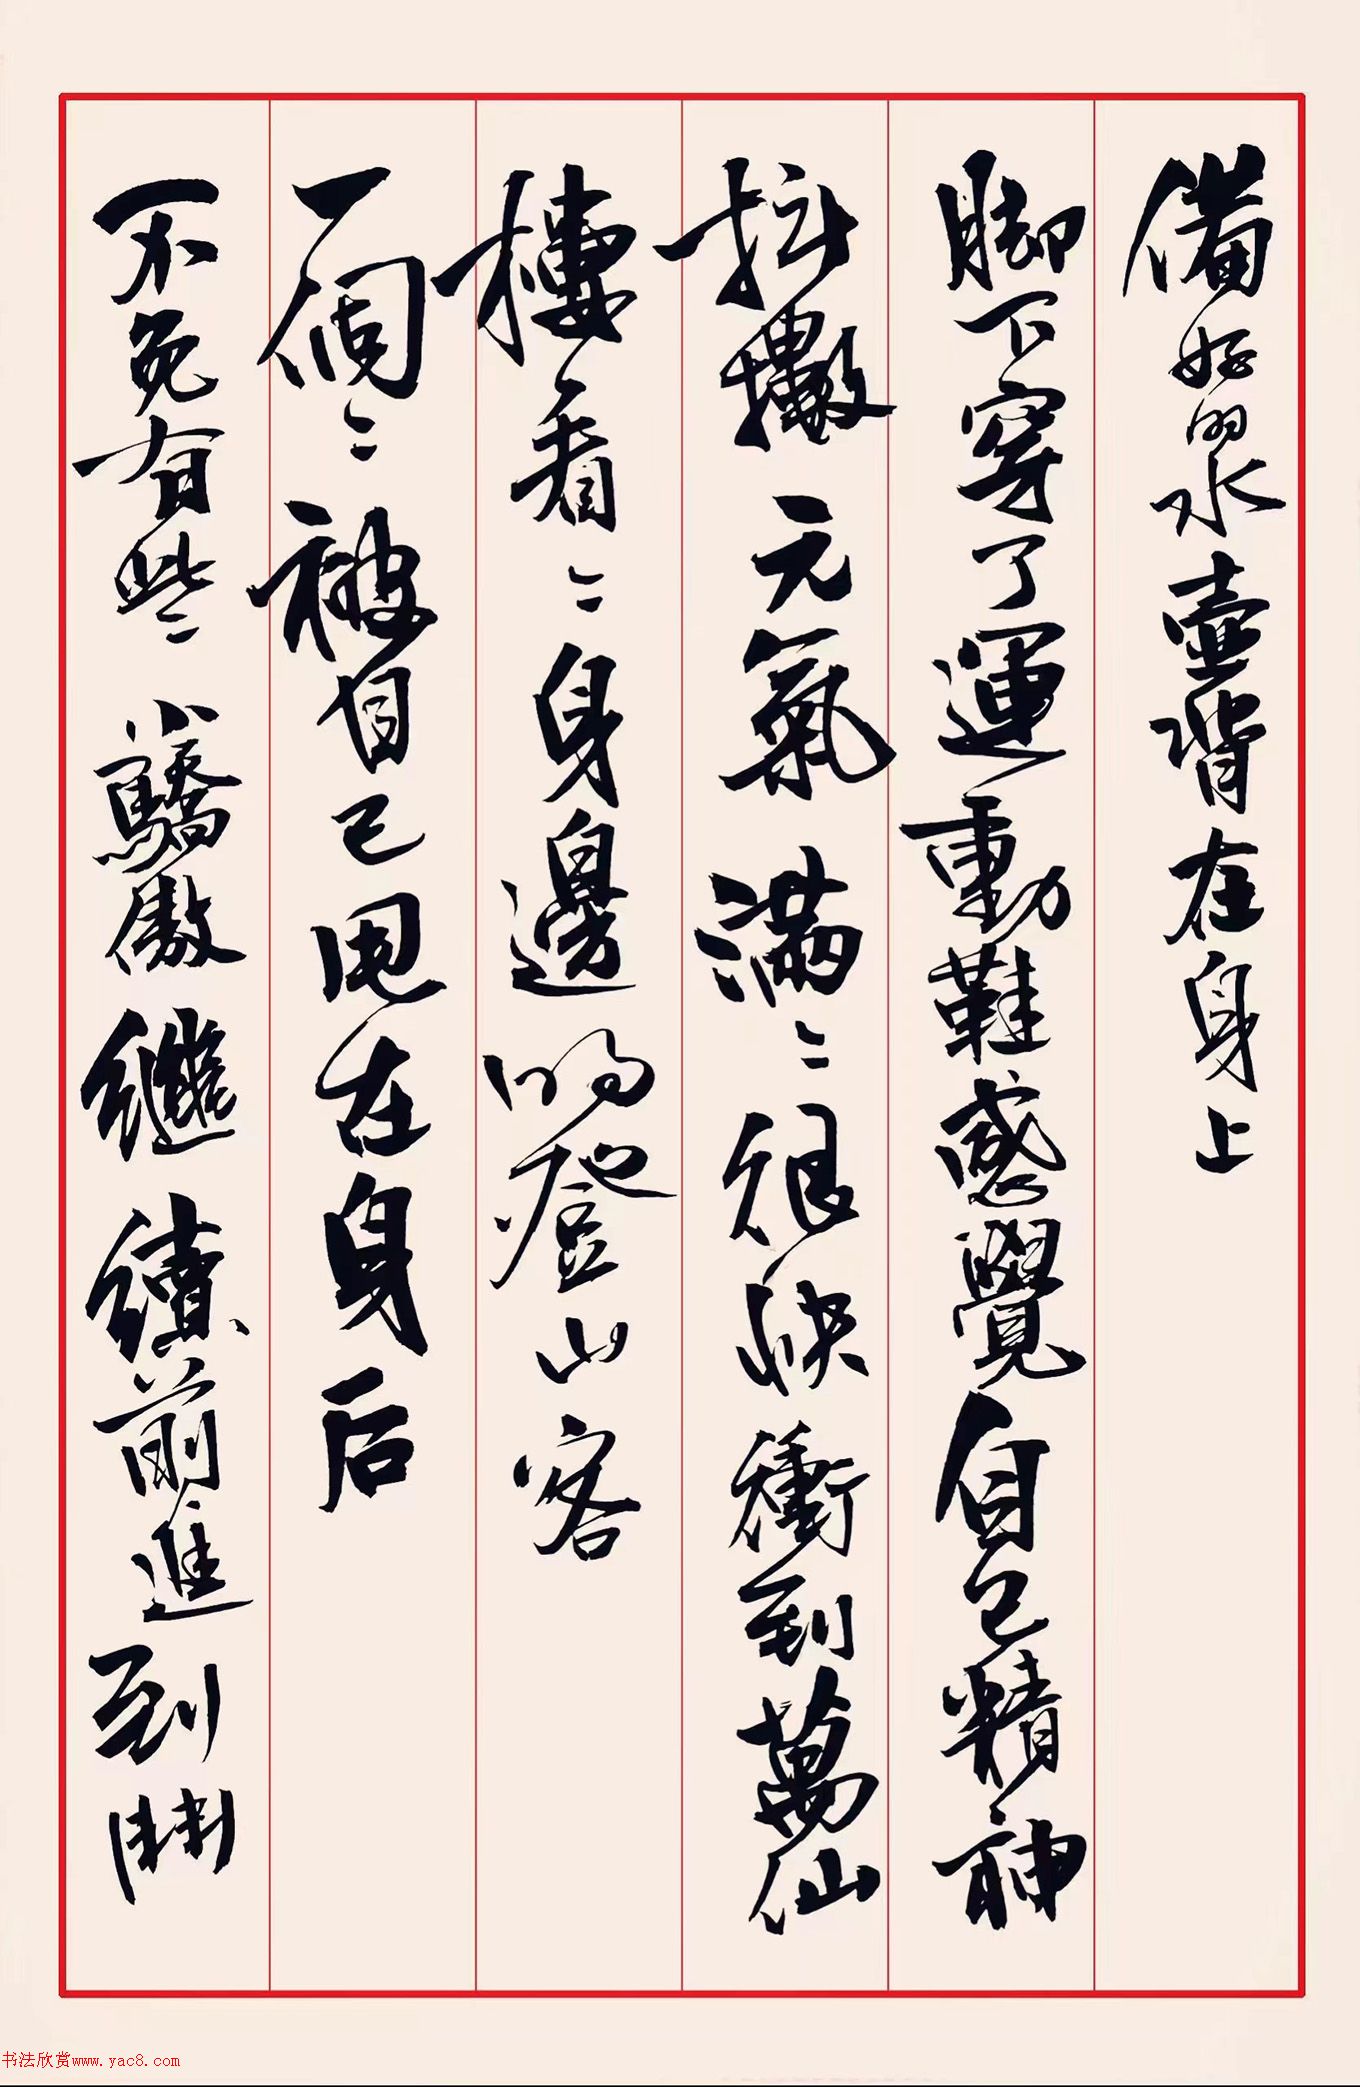 備好的水壺背在身上
脚下穿了運動鞋感覺自己精神
抖擻元氣滿々很快衝到萬仙
樓看々身邊的登山客
一個々被自己甩在身后
不免有些々小驕傲繼續前進到鬥
书法欣赏www.yac8.com